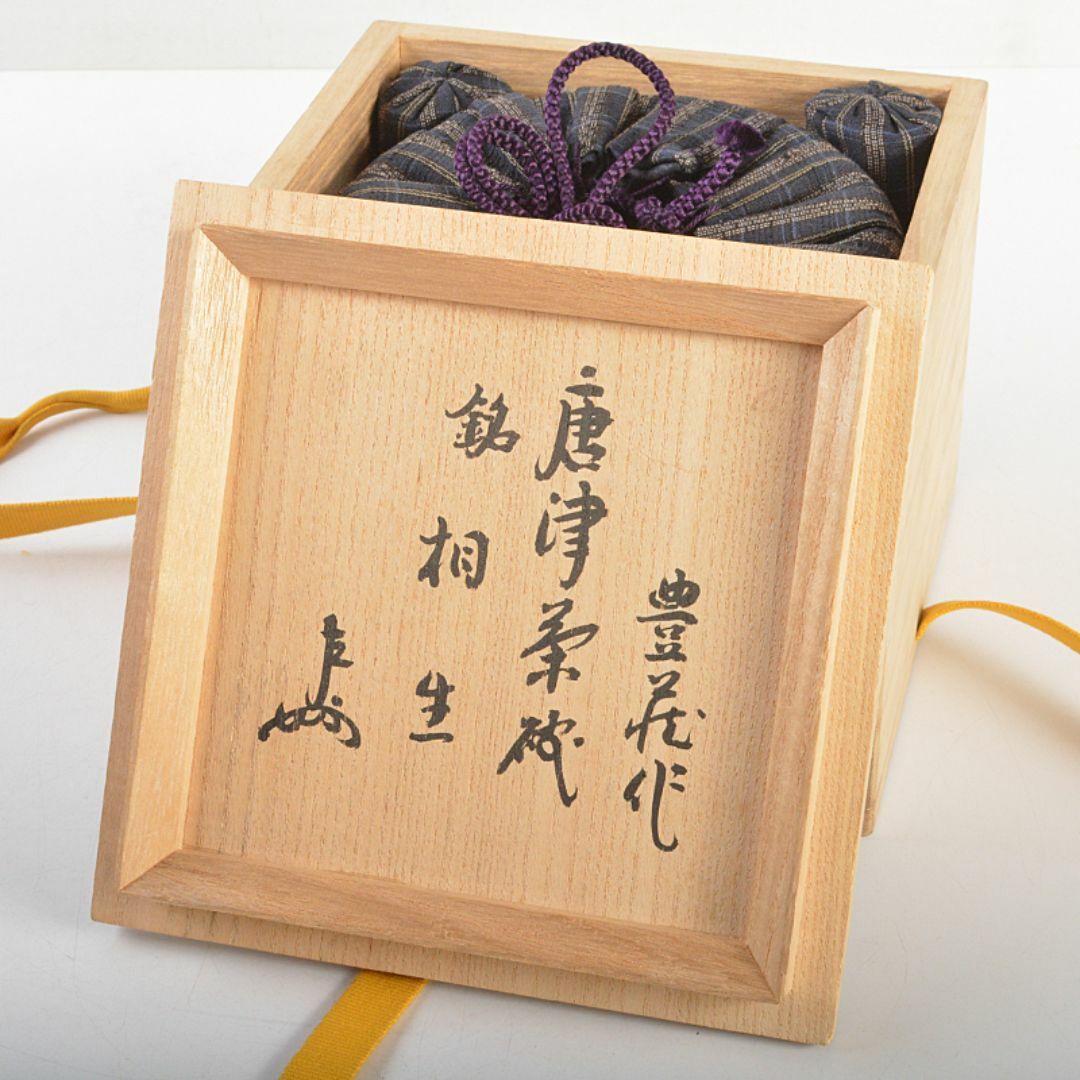 豊蔵作
唐津茶碗
銘 相生